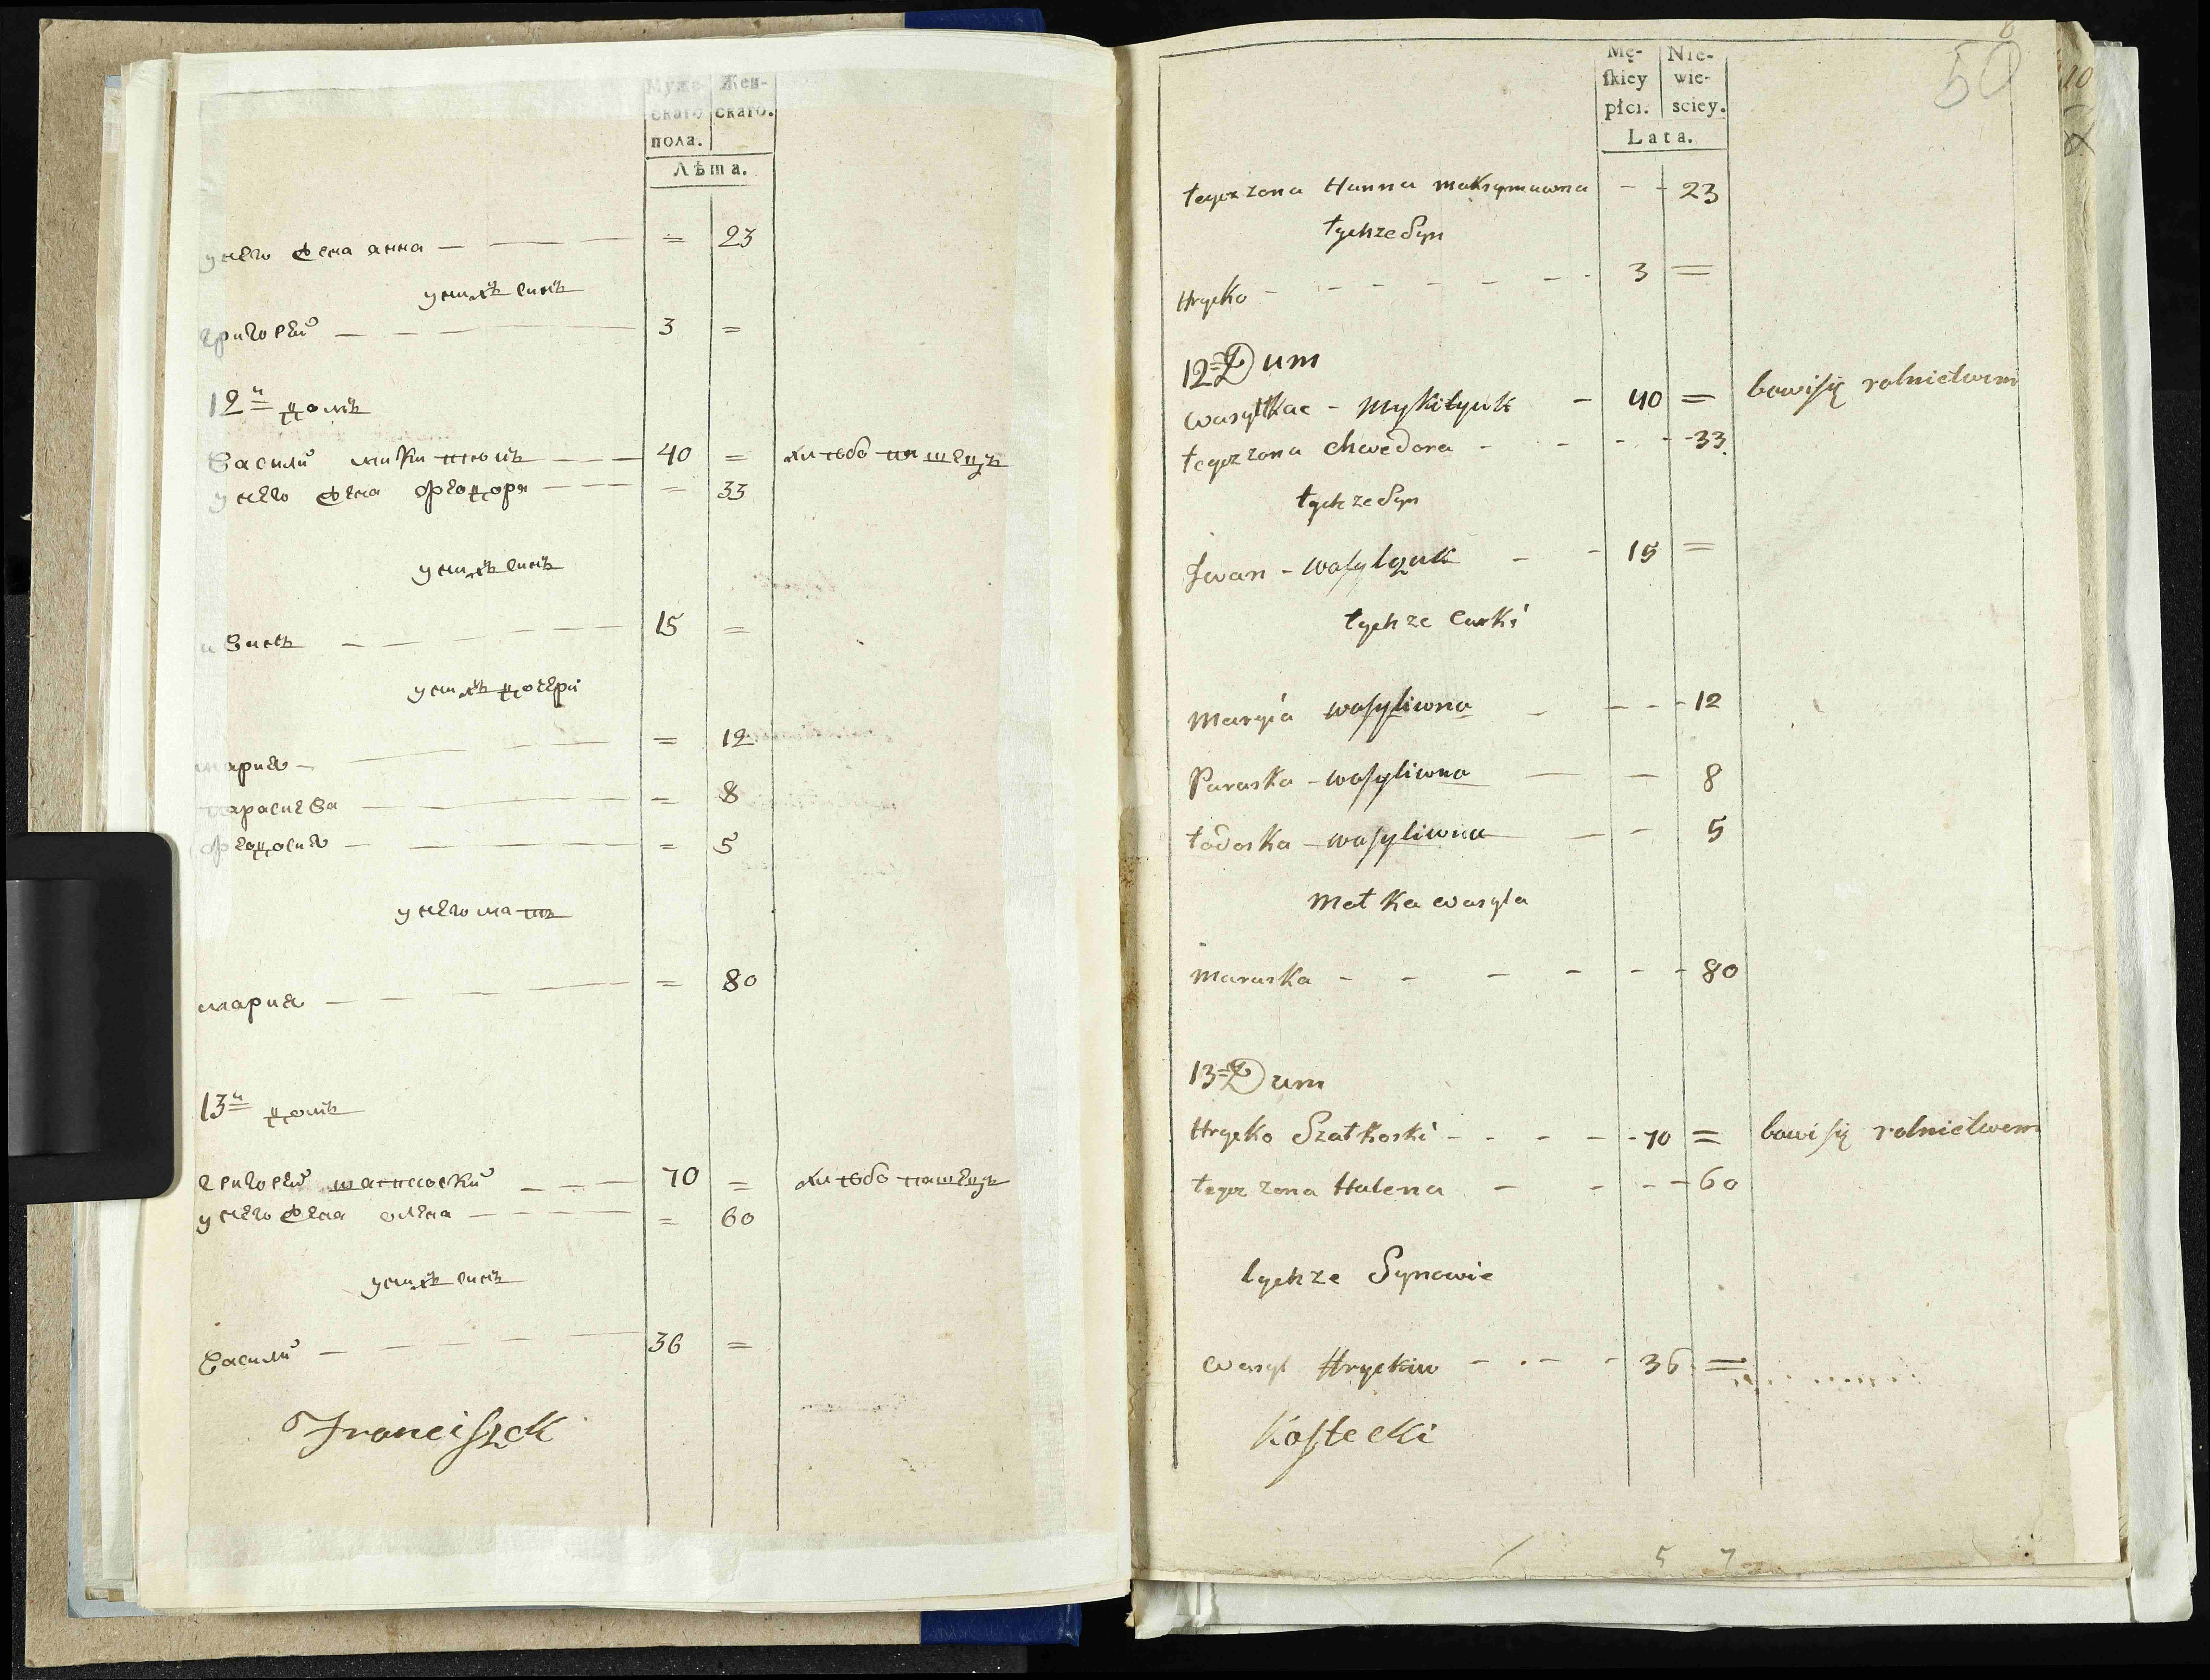 Муже- | Жен-
скаго | скаго.
пола.
Лѣта.
у него жена анна — = 23
у нихъ синъ
григорей — 3 =
12й домъ
Василий микитюкъ — 40 = хлѣбопашецъ
у него жена феодора — = 33
у нихъ синъ
иванъ — 15 =
у нихъ дочери
мария — = 12
парасиева — = 8
феодосия — = 5
у него мать
мария — = 80
13й домъ
григорей шатковский — 70 = хлѣбопашецъ
у него жена олена — = 60
у нихъ синъ
Василий — 36 =
Franciſzek
50
Mę- | Nie-
ſkiey | wie-
płci. | sciey.
Lata.
tegoz zona Hanna maksymuwna - - 23
tychze Syn
Hryćko - 3 =
12 Dum
wasyl tkac - Mykityuk - 40 = bawi się rolnictwem
tegoz zona chwedora - - 33
tychze Syn
Jwan - waſylczuk - 15 =
tychze Curki
Maryia waſyliwna - - 12
Paraska - waſyliwna - 8
todoska - waſyliwna - 5
Matka wasyla
Maruska - - 80
13 Dum
Hryćko Szatkoski - 70 = bawi się rolnictwem
tegoz zona Halena - - 60
tychze Synowie
wasyl Hryckiw - 36 =
Koſtecki
5 7